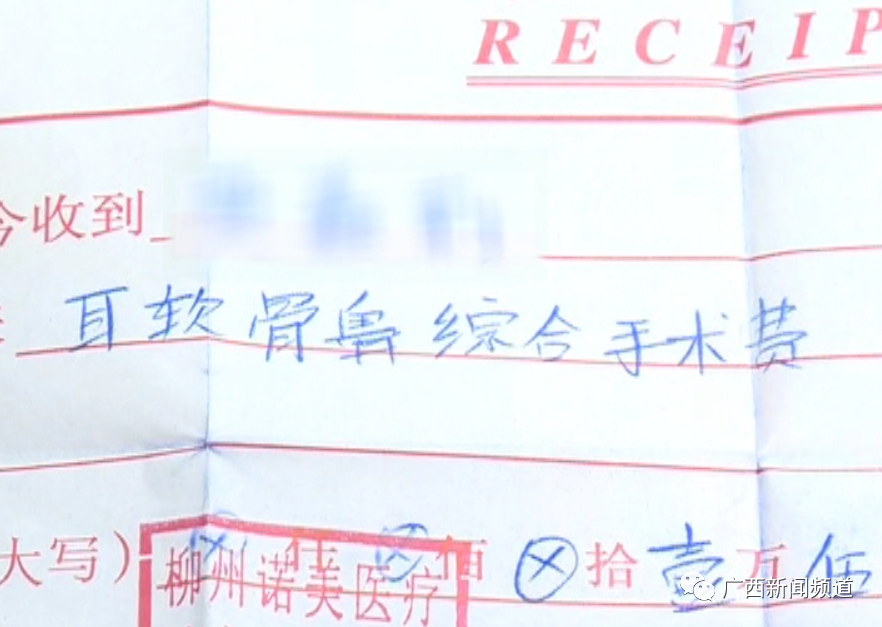 RECEIP
今收到
耳软骨鼻综合手术费
大写) ⊗仟⊗佰⊗拾壹万伍
柳州诺美医疗
广西新闻频道